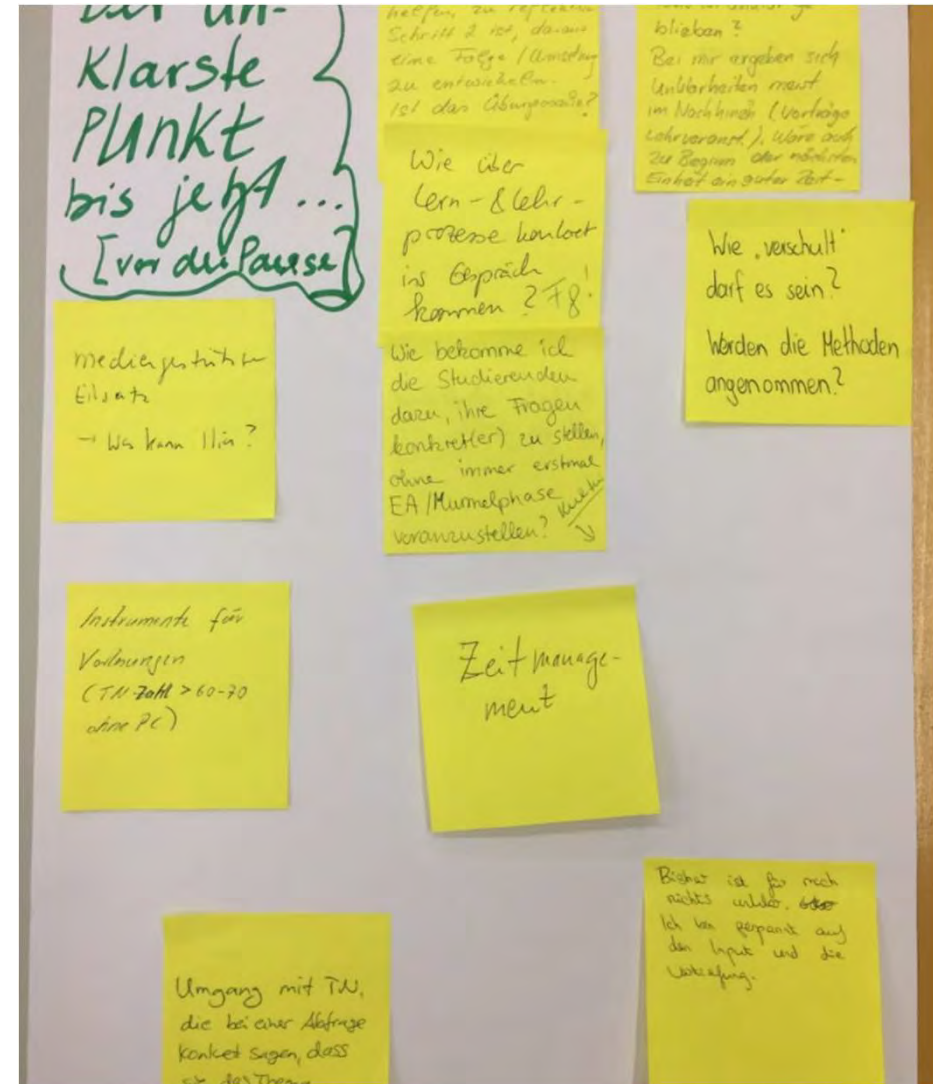 Der un-
Klarste
Punkt
bis jetzt...
[vor der Pause]
helfen, zu reflektieren
Schritt 2 ist, daraus
eine Folge / Umsetzung
zu entwickeln.
Ist das Übungssache?
blieben?
Bei mir ergeben sich
Unklarheiten meist
im Nachhinein (Vorträge
Lehrveranst.). Wäre auch
zu Beginn der nächsten
Einheit ein guter Zeit-
Wie über
Lern- & Lehr-
prozesse konkret
ins Gespräch
kommen?
Wie „verschult“
darf es sein?
Werden die Methoden
angenommen?
mediengestützter
Einsatz
→ Was kann
Wie bekomme ich
die Studierenden
dazu, ihre Fragen
konkret(er) zu stellen,
ohne immer erstmal
EA/Murmelphase
voranzustellen?
Instrumente für
Vorlesungen
(TN-Zahl > 60-70
ohne PC)
Zeitmanage-
ment
Bisher ist für mich
nichts unklar.
Ich bin gespannt auf
den Input und die
Vertiefung.
Umgang mit TN,
die bei einer Abfrage
konket sagen, dass
sie das Thema